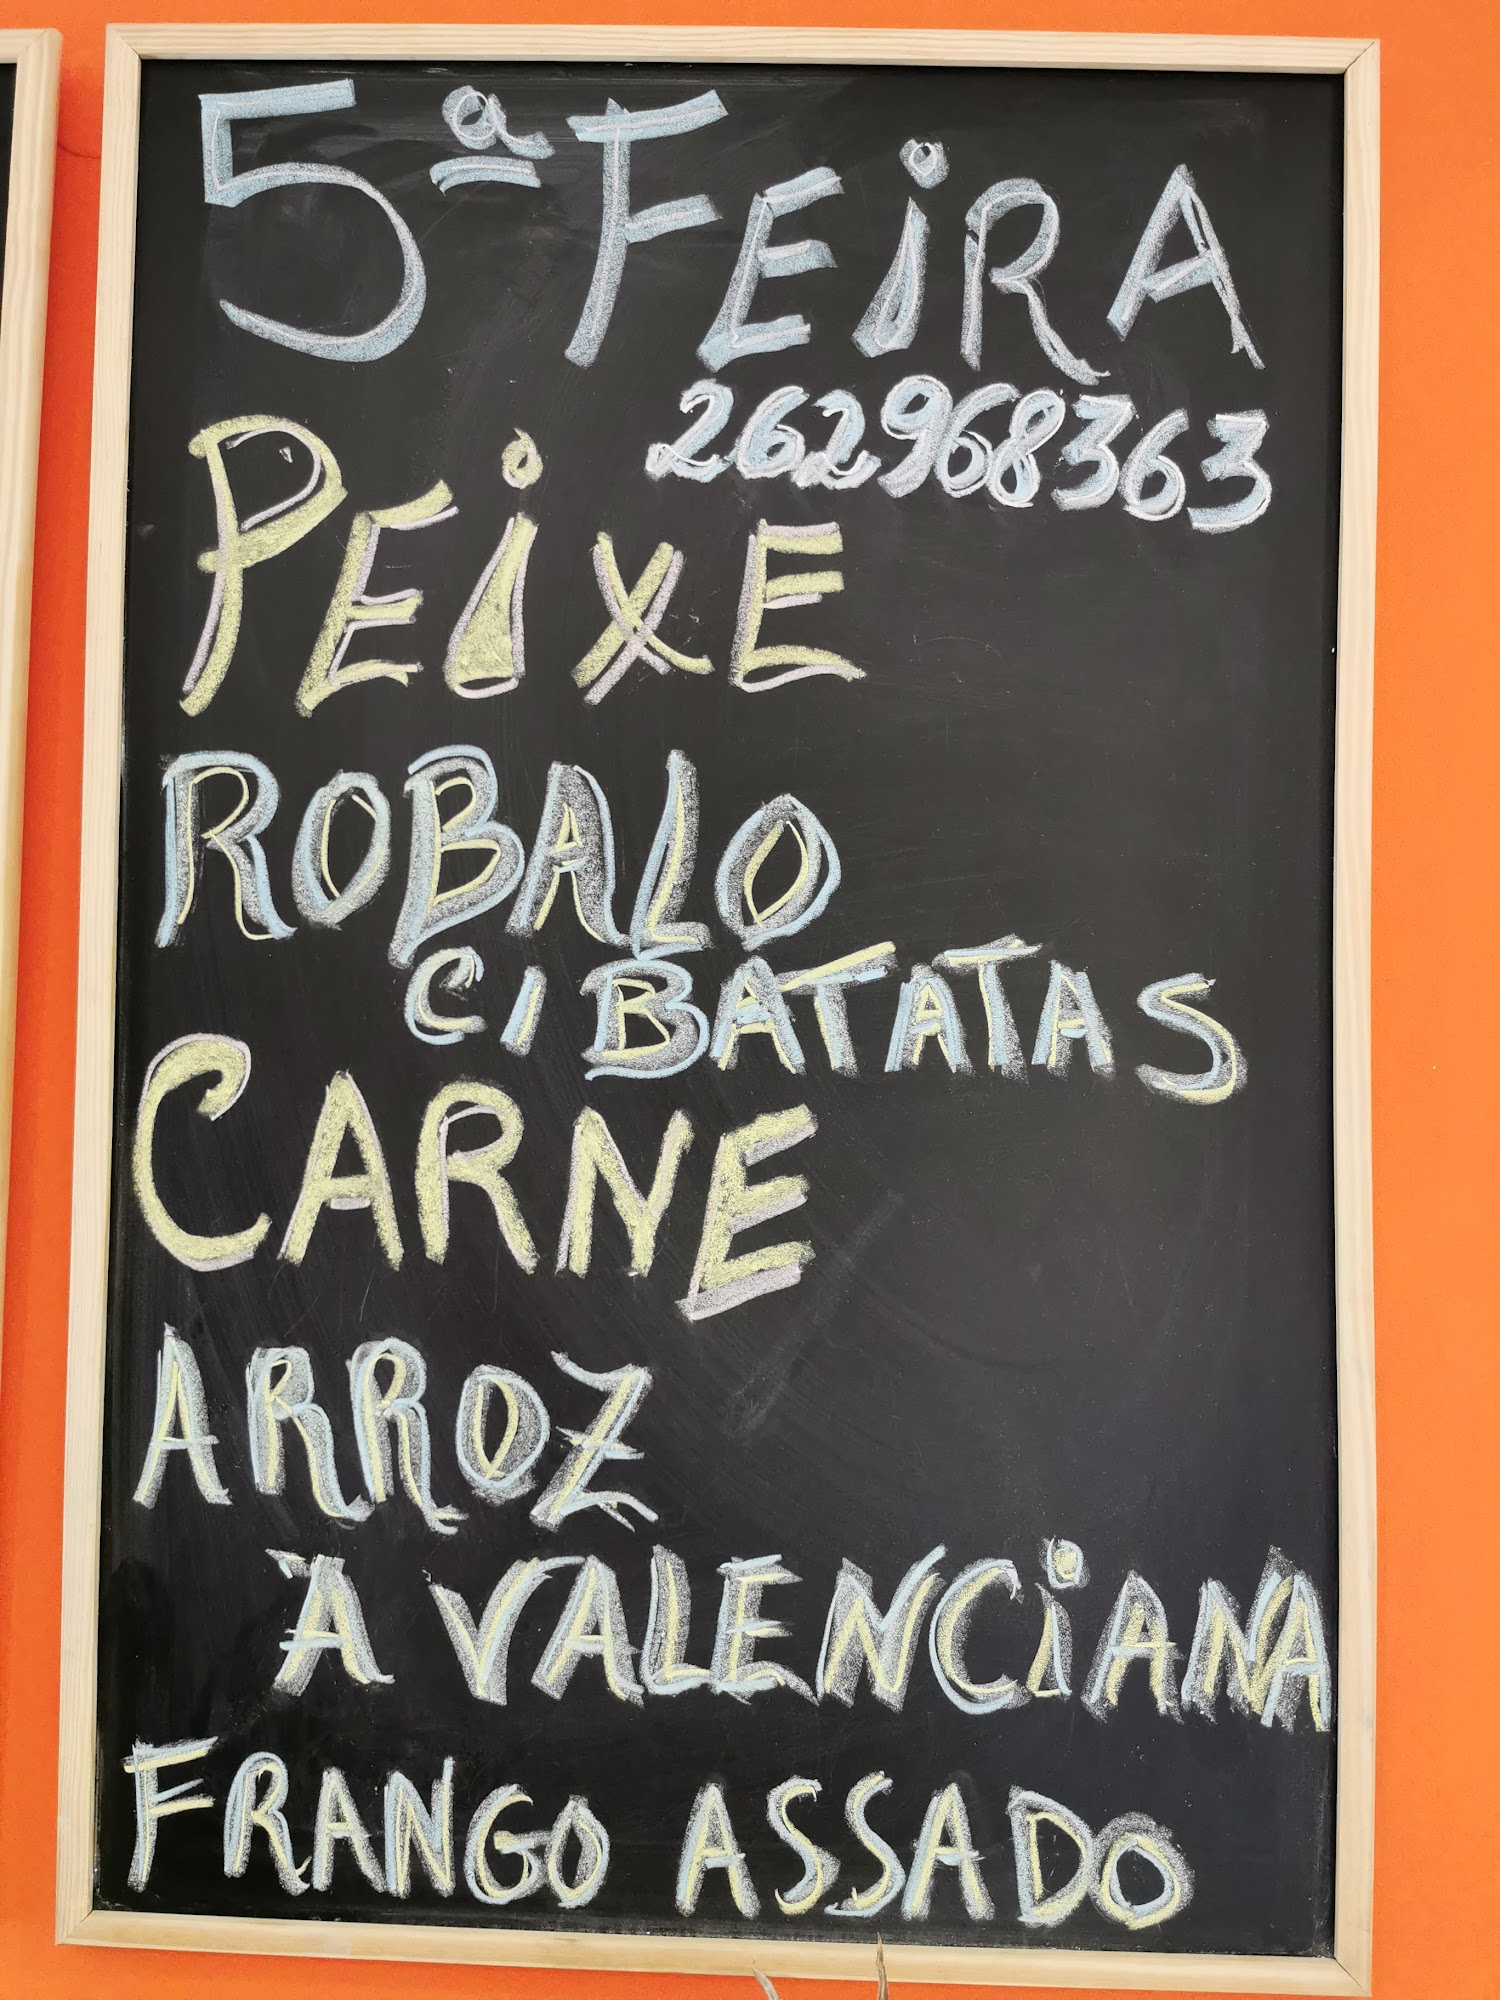 5ª FEiRA
262968363
PEiXE
ROBALO
C/ BATATAS
CARNE
ARROZ
À VALENCiANA
FRANGO ASSADO